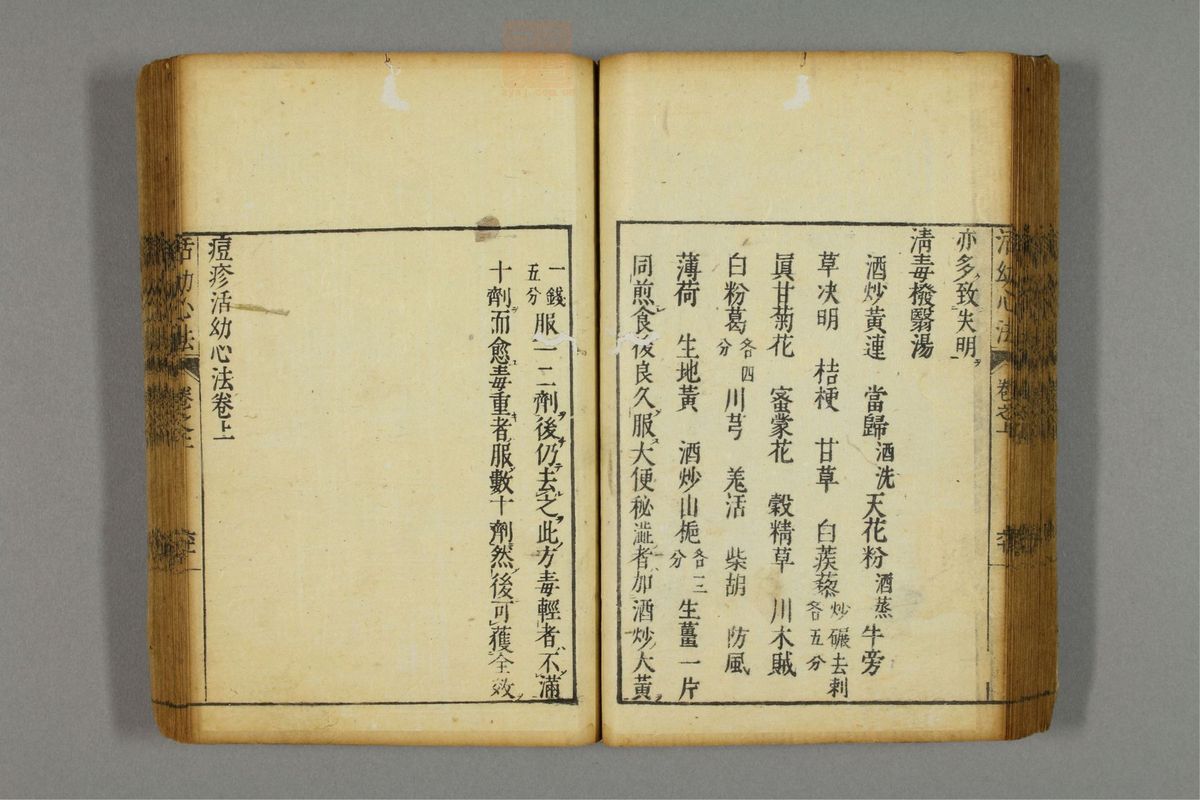 亦多致失明
清毒撥翳湯
酒炒黃連 當歸酒洗 天花粉酒蒸 牛旁
草決明 桔梗 甘草 白蒺藜炒碾去刺各五分
眞甘菊花 蜜蒙花 穀精草 川木賊
白粉葛各四分 川芎 羗活 柴胡 防風
薄荷 生地黃 酒炒山梔各三分 生薑一片
同煎食後良久服大便秘澁者加酒炒大黃
一錢五分服一二劑後仍去之此方毒輕者不滿
十劑而愈毒重者服數十劑然後可獲全效
痘疹活幼心法卷上
活幼心法 卷之上
活幼心法 卷之上